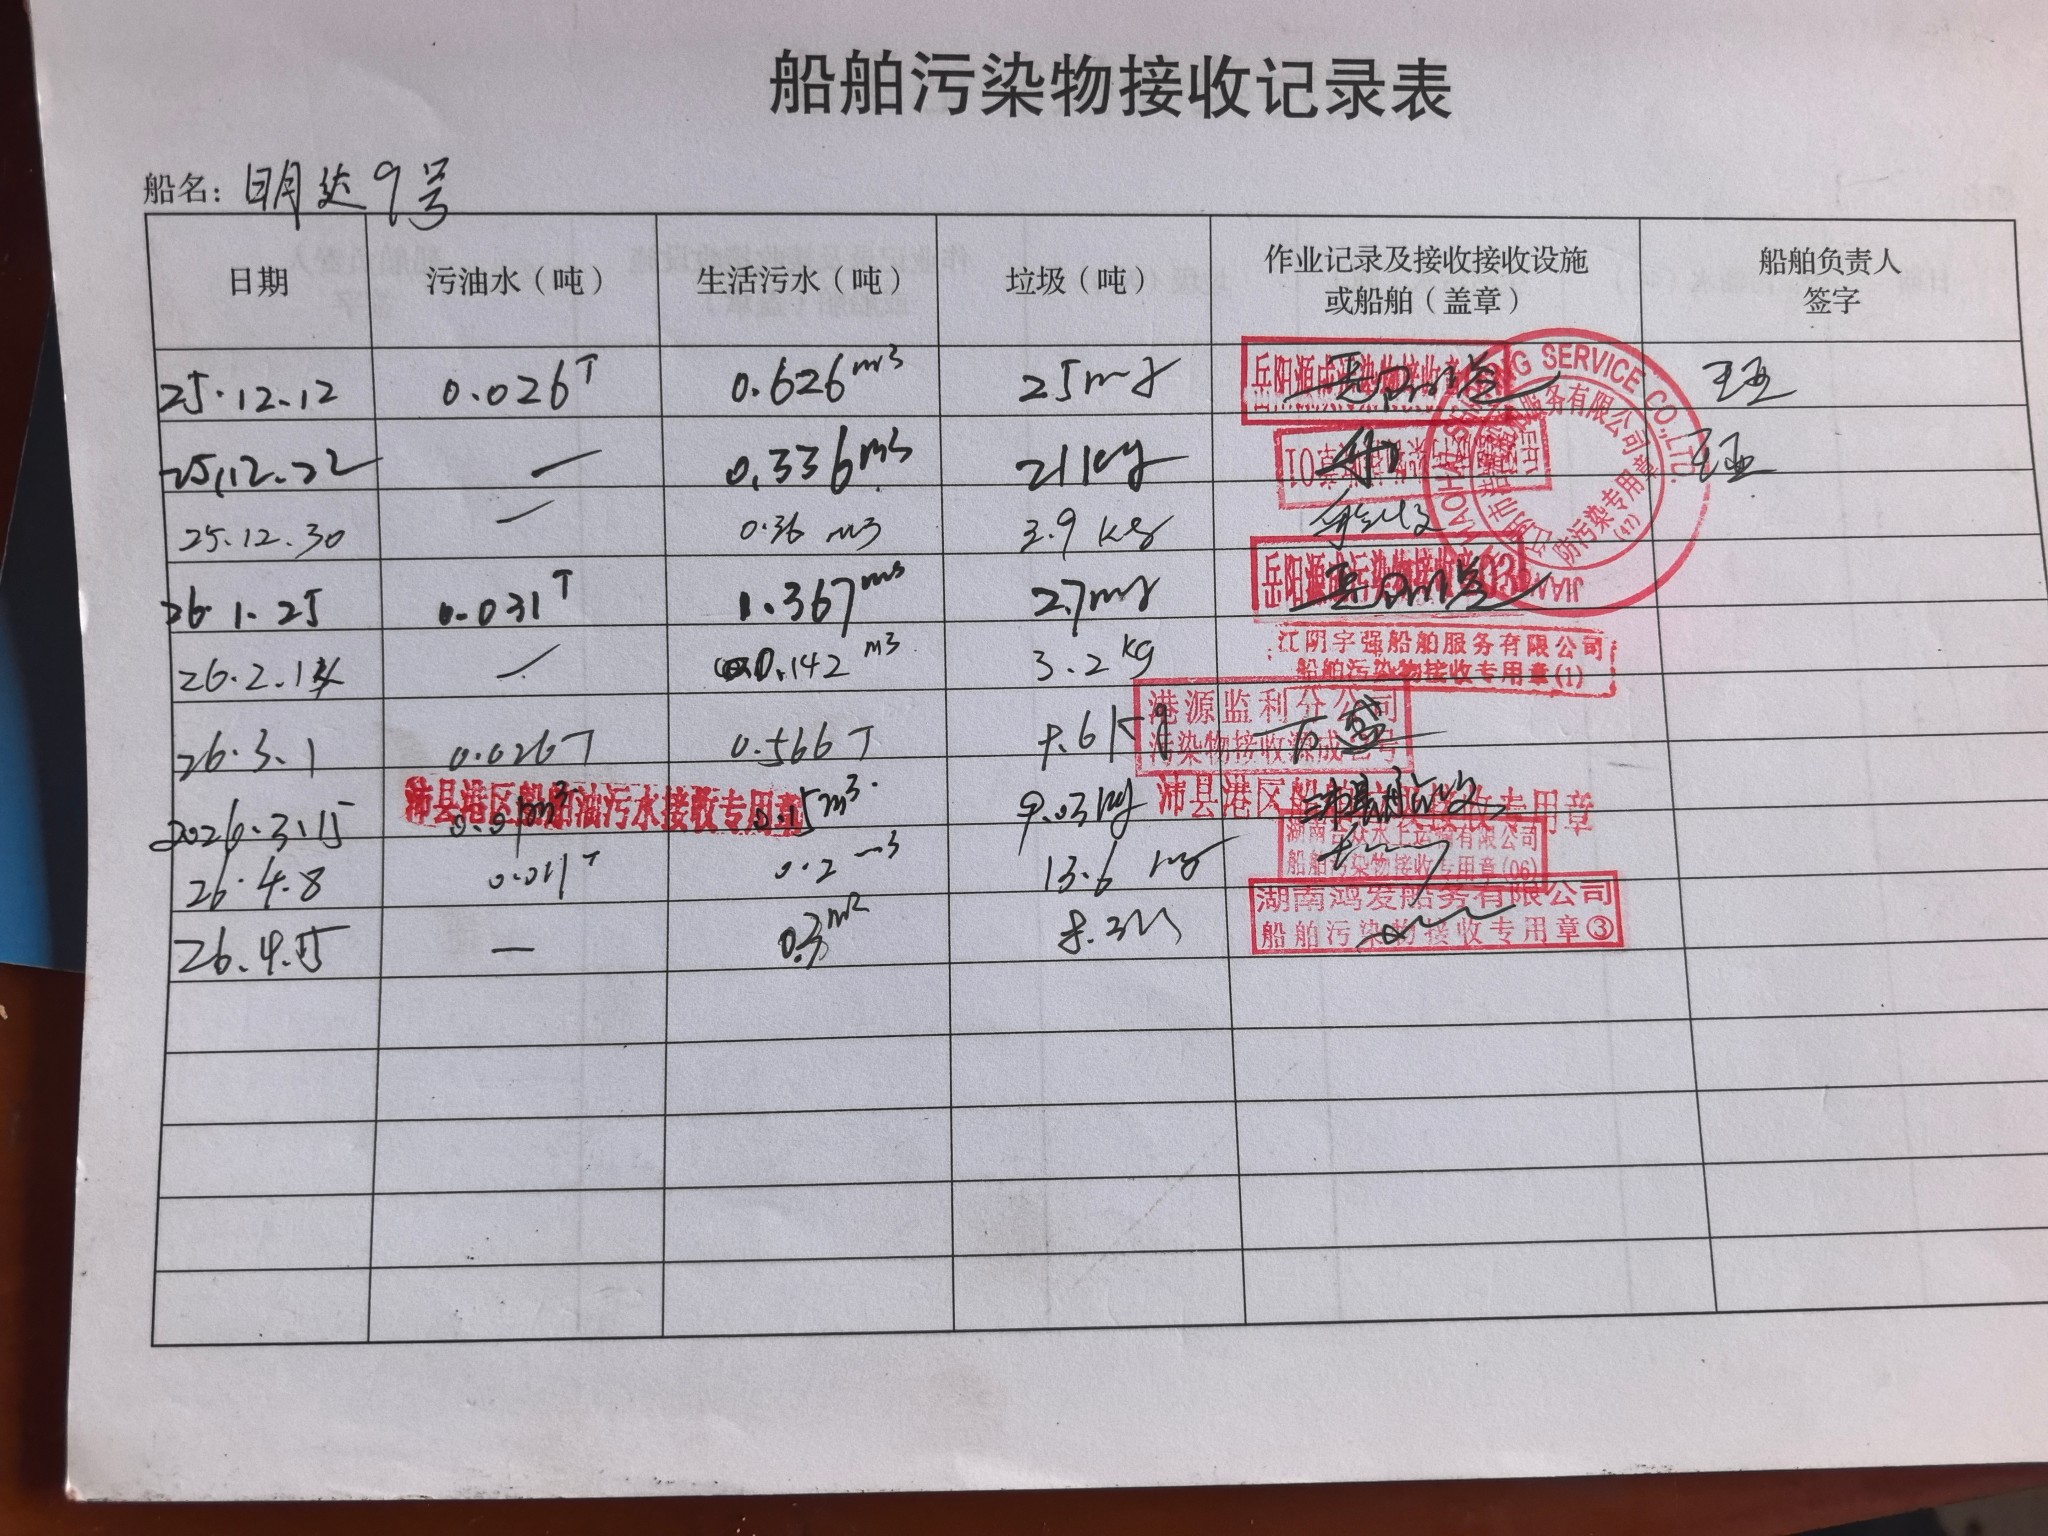 船舶污染物接收记录表
船名: 明达9号
日期 污油水（吨） 生活污水（吨） 垃圾（吨） 作业记录及接收接收设施或船舶（盖章） 船舶负责人签字
25.12.12 0.026T 0.626m3 25 岳阳源成污染物接收
25.12.22 — 0.336m3 21kg
25.12.30 — 0.36 m3 3.9 kg
26.1.25 0.031T 1.367m3 27 岳阳源成污染物接收
26.2.14 — 0.142 m3 3.2kg 江阴宇强船舶服务有限公司 船舶污染物接收专用章(1)
26.3.1 0.026T 0.566T 港源监利分公司 污染物接收源成
2026.3.15 沛县港区船舶油污水接收专用章 0.15m3 9.03kg 沛县港区船 接收专用章
26.4.8 0.011T 0.2 m3 13.6 湖南 水上运输有限公司 船舶污染物接收专用章(06)
26.4.15 — 0.3 8.3 湖南鸿发船务有限公司 船舶污染物接收专用章③
SERVICE CO.,LTD.
服务有限公司
防污染专用章
(47)